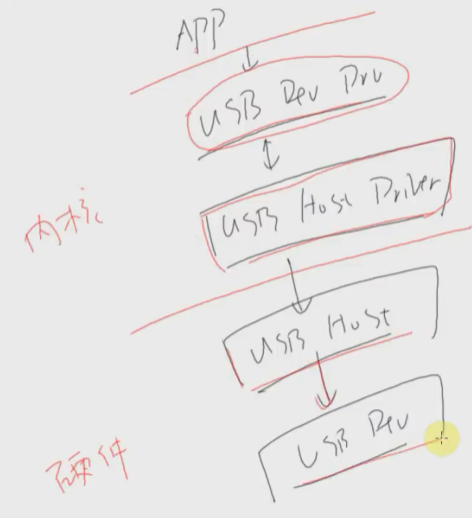 APP
USB Dev Drv
USB Host Driver
内核
USB Host
USB Dev
硬件